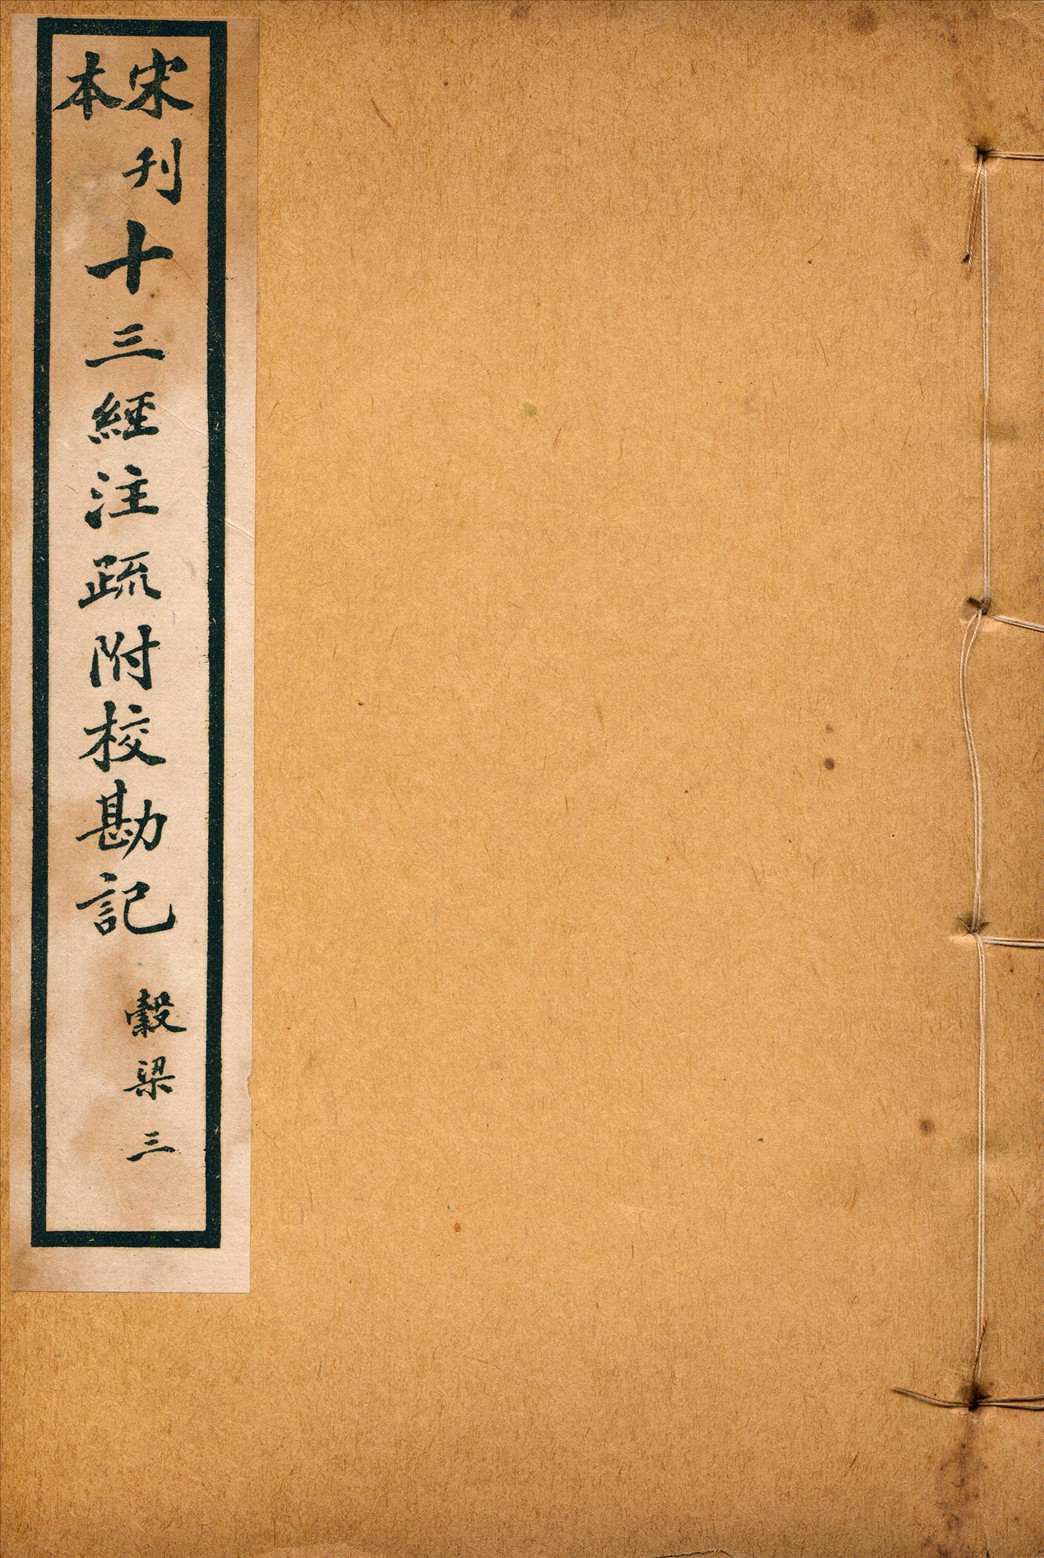 宋刊
本
十三經注疏附校勘記
穀梁 三